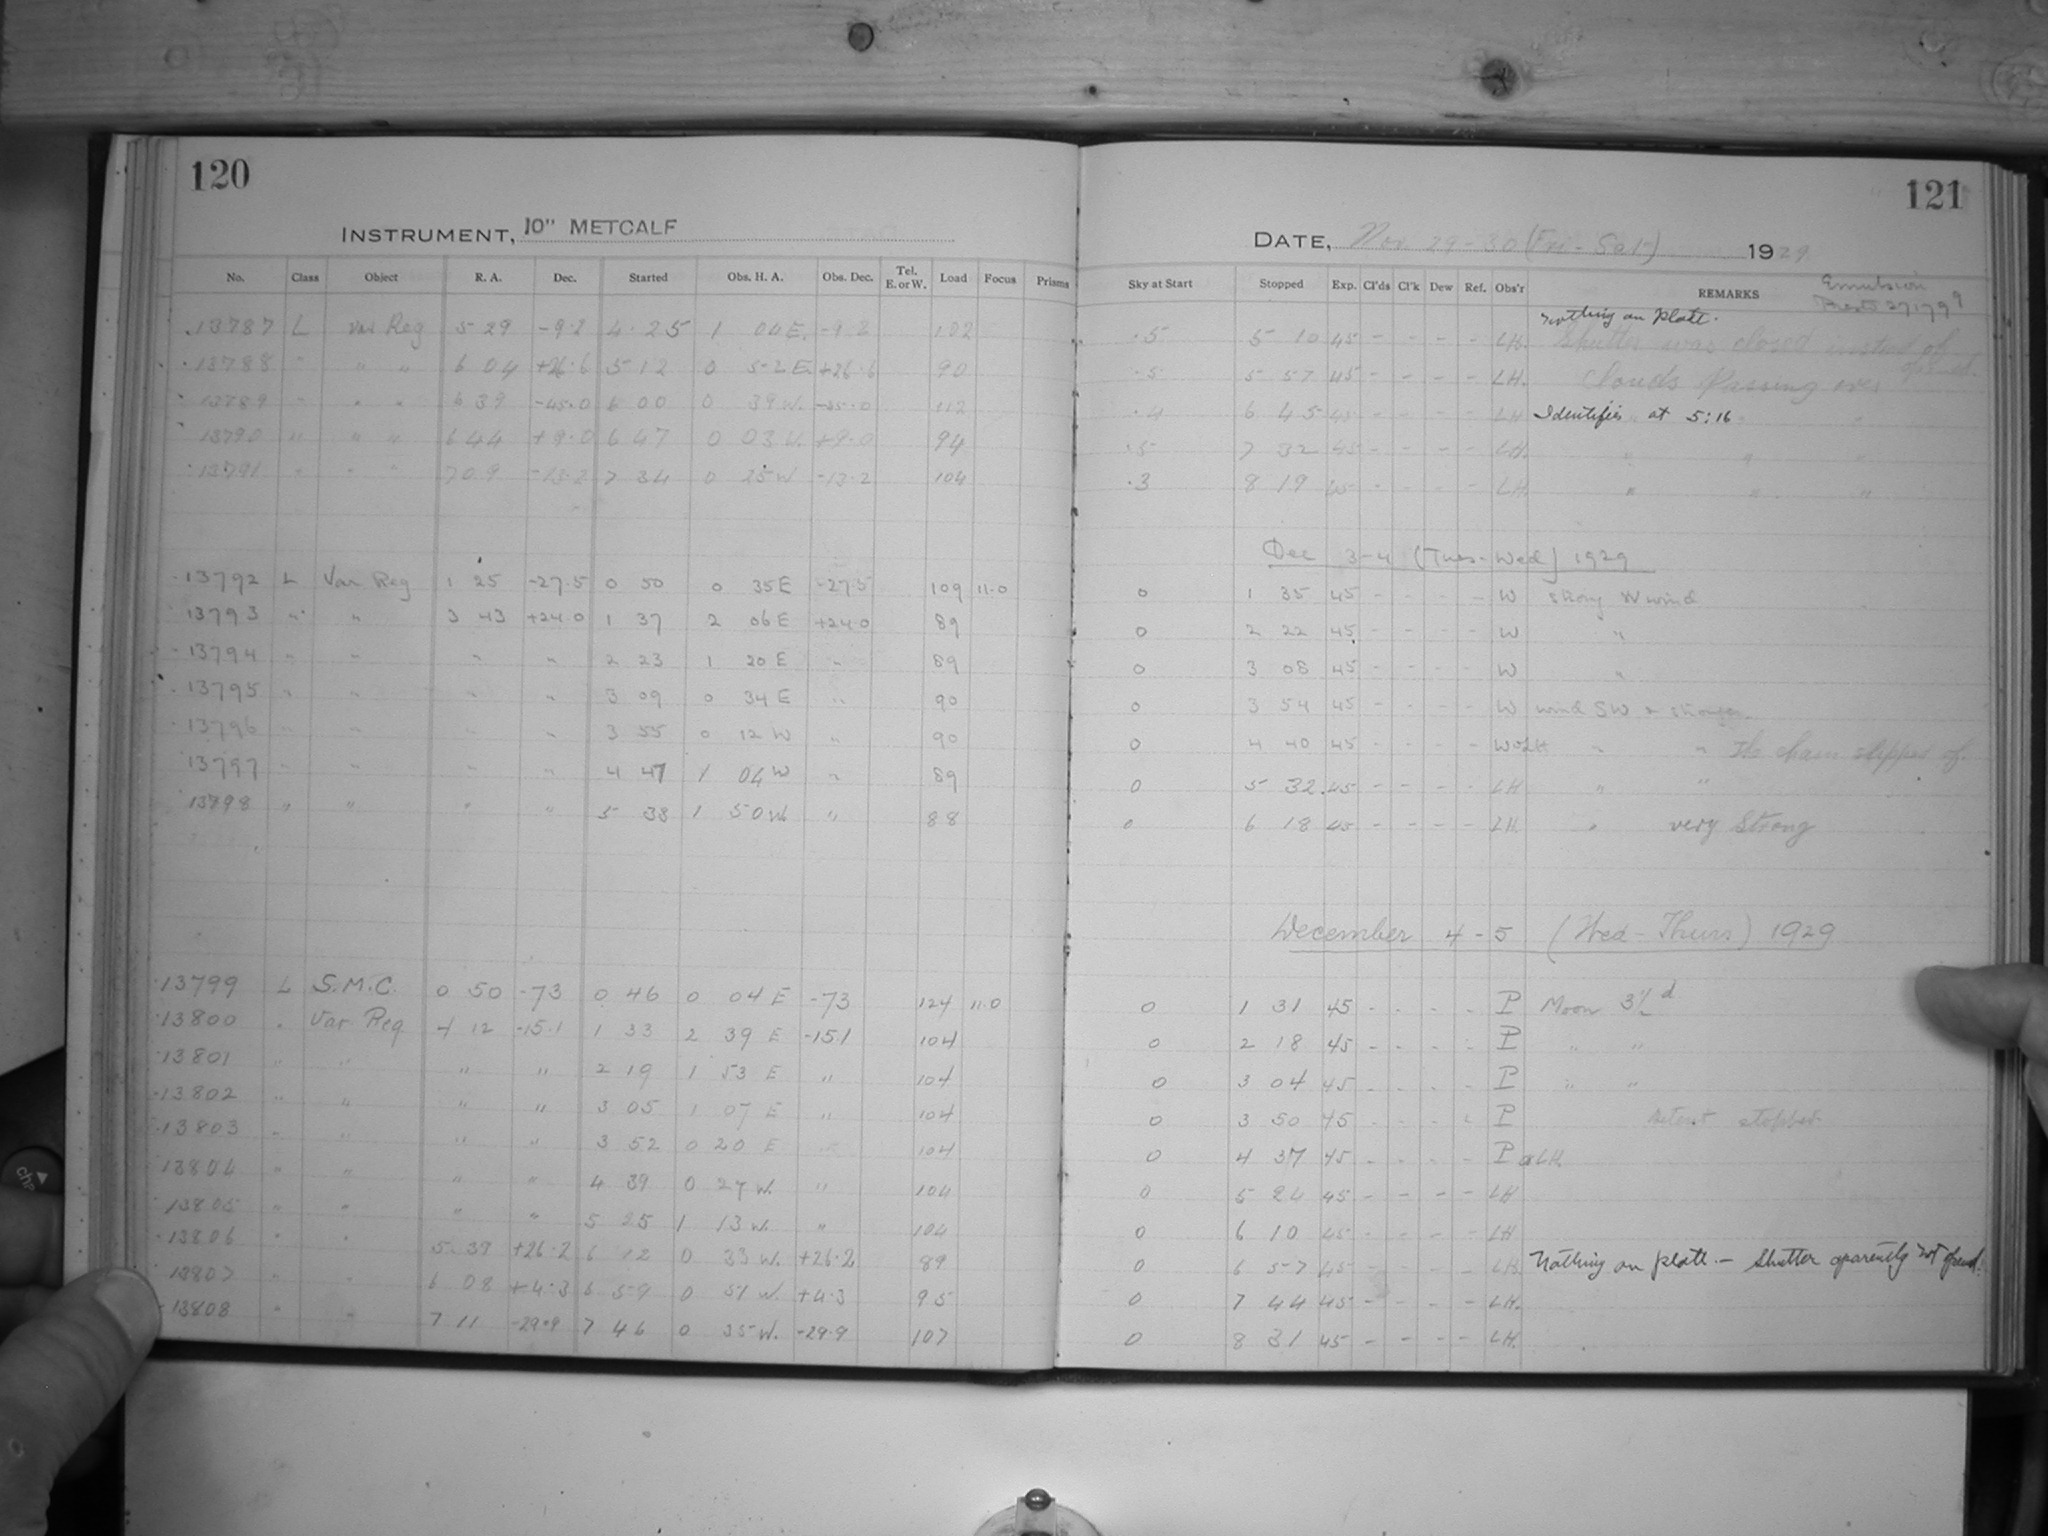 120
INSTRUMENT, 10" METCALF
No. Class Object R. A. Dec. Started Obs. H. A. Obs. Dec. Tel. E. or W. Load Focus Prisms
13787 L Var Reg 5 29 -9.2 4 25 1 04 E. -9.2 102
13788 " " " 6 04 +26.6 5 12 0 52 E +26.6 90
13789 " " " 6 39 -45.0 6 00 0 39 W. -45.0 112
13790 " " " 6 44 +9.0 6 47 0 03 W. +9.0 94
13791 " " " 7 09 -13.2 7 34 0 25 W -13.2 104
13792 L Var Reg 1 25 -27.5 0 50 0 35 E -27.5 109 11.0
13793 " " 3 43 +24.0 1 37 2 06 E +24.0 89
13794 " " " " 2 23 1 20 E " 89
13795 " " " " 3 09 0 34 E " 90
13796 " " " " 3 55 0 12 W " 90
13797 " " " " 4 47 1 04 W " 89
13798 " " " " 5 33 1 50 W. " 88
13799 L S.M.C. 0 50 -73 0 46 0 04 E -73 124 11.0
13800 " Var Reg. 4 12 -15.1 1 33 2 39 E -15.1 104
13801 " " " " 2 19 1 53 E " 104
13802 " " " " 3 05 1 07 E " 104
13803 " " " " 3 52 0 20 E " 104
13804 " " " " 4 39 0 27 W. " 104
13805 " " " " 5 25 1 13 W. " 104
13806 " " 5 39 +26.2 6 12 0 33 W. +26.2 89
13807 " " 6 08 +4.3 6 59 0 51 W. +4.3 95
13808 " " 7 11 -29.9 7 46 0 35 W. -29.9 107
121
DATE, Nov 29-30 (Fri-Sat) 1929
Sky at Start Stopped Exp. Cl'ds Cl'k Dew Ref. Obs'r REMARKS Emulsion
Nothing on plate.
.5 5 10 45 - - - - LH. Shutter was closed instead of opened.
.5 5 57 45 - - - - LH. Clouds Passing over
.4 6 45 45 - - - - LH Identifies at 5:16
.5 7 32 45 - - - - LH. " " "
.3 8 19 45 - - - - LH. " " "
Dec 3-4 (Tues-Wed) 1929
0 1 35 45 - - - - W Strong W wind
0 2 22 45 - - - - W "
0 3 08 45 - - - - W "
0 3 54 45 - - - - W wind SW & stronger
0 4 40 45 - - - - W+LH " " The chain slipped of.
0 5 32 45 - - - - LH " "
0 6 18 45 - - - - LH. " very Strong
December 4-5 (Wed-Thurs) 1929
0 1 31 45 - - - - P Moon 3½ d
0 2 18 45 - - - - P " "
0 3 04 45 - - - - P " "
0 3 50 45 - - - - P stopped
0 4 37 45 - - - - P & LH.
0 5 24 45 - - - - LH
0 6 10 45 - - - - LH
0 6 57 45 - - - - LH. Nothing on plate. - Shutter aparently not opened.
0 7 44 45 - - - - LH.
0 8 31 45 - - - - LH.